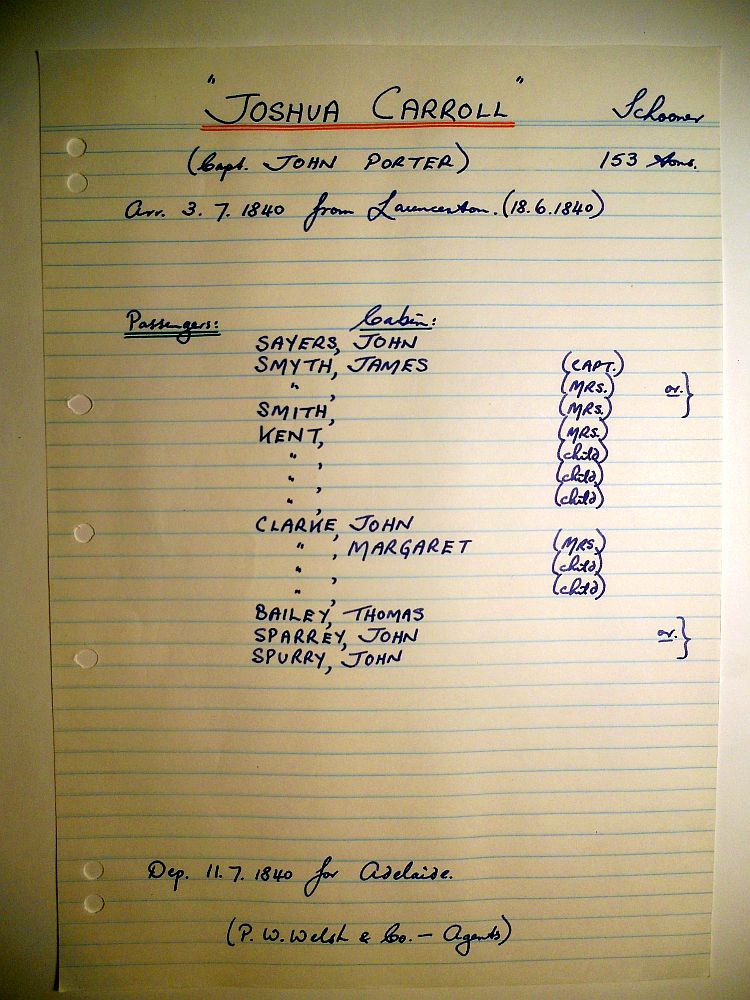 "JOSHUA CARROLL" Schooner
(Capt. JOHN PORTER) 153 tons.
Arr. 3. 7. 1840 from Launceston. (18.6.1840)
Passengers: Cabin:
SAYERS, JOHN
SMYTH, JAMES (CAPT.)
" , (MRS.) or. }
SMITH, (MRS.)
KENT, (MRS.)
" , (child)
" , (child)
" , (child)
CLARKE, JOHN
" , MARGARET (MRS.)
" , (child)
" , (child)
BAILEY, THOMAS
SPARREY, JOHN or. }
SPURRY, JOHN
Dep. 11. 7. 1840 for Adelaide.
(P. W. Welsh & Co. — Agents)